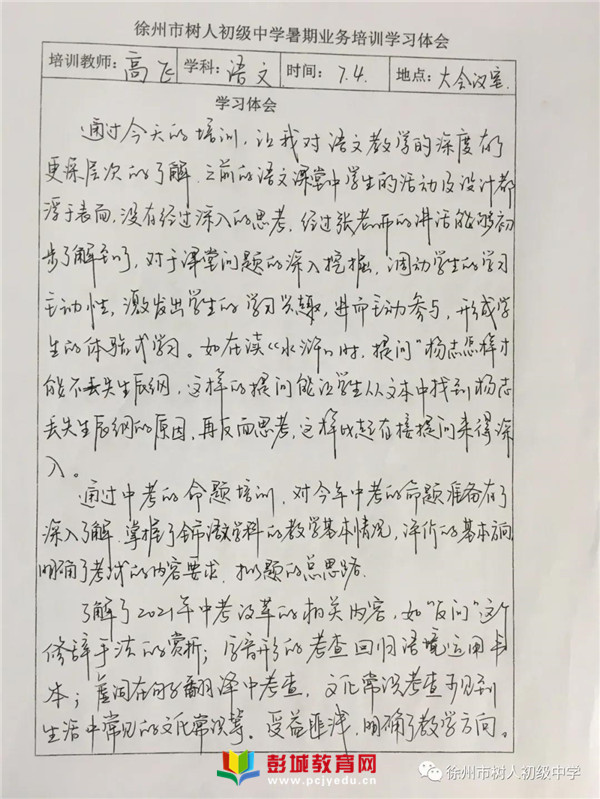 徐州市树人初级中学暑期业务培训学习体会
培训教师: 高飞 学科: 语文 时间: 7.4. 地点: 大会议室.
学习体会
通过今天的培训,让我对语文教学的深度有了
更深层次的了解.之前的语文课堂中学生的活动及设计都
浮于表面,没有经过深入的思考.经过张老师的讲话能够初
步了解到了,对于课堂问题的深入挖掘,调动学生的学习
主动性,激发出学生的学习兴趣,进而主动参与,形成学
生的体验式学习。如在读《水浒》时,提问"杨志怎样才
能不丢失生辰纲,这样的提问能让学生从文本中找到杨志
丢失生辰纲的原因,再反面思考,这样比起直接提问来得深
入。
通过中考的命题培训,对今年中考的命题准备有了
深入了解.掌握了全市语文学科的教学基本情况,评价的基本方向
明确了考试的内容要求.拟题的总思路.
了解了2021年中考改革的相关内容,如"反问"这个
修辞手法的赏析;字音形的考查回归语境运用书
本;虚词在句子翻译中考查,文化常识考查可见到
生活中常见的文化常识等。受益匪浅,明确了教学方向。
彭城教育网
www.pcjyedu.cn
徐州市树人初级中学